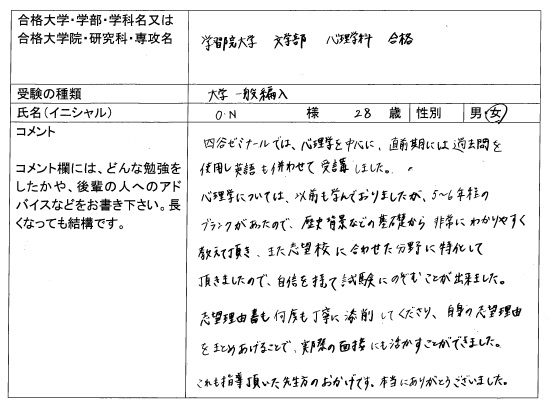 合格大学・学部・学科名又は
合格大学院・研究科・専攻名
学習院大学 文学部 心理学科 合格
受験の種類
大学一般編入
氏名(イニシャル)
O.N 様 28 歳 性別 男・女
コメント
コメント欄には、どんな勉強を
したかや、後輩の人へのアド
バイスなどをお書き下さい。長
くなっても結構です。
四谷ゼミナールでは、心理学を中心に、直前期には過去問を
使用し英語も併わせて受講しました。
心理学については、以前も学んでおりましたが、5~6年程の
ブランクがあったので、歴史背景などの基礎から非常にわかりやすく
教えて頂き、また志望校に合わせた分野に特化して
頂きましたので、自信を持って試験にのぞむことが出来ました。
志望理由書も何度も丁寧に添削してくださり、自身の志望理由
をまとめあげることで、実際の面接にも活かすことができました。
これも指導頂いた先生方のおかげです。本当にありがとうございました。